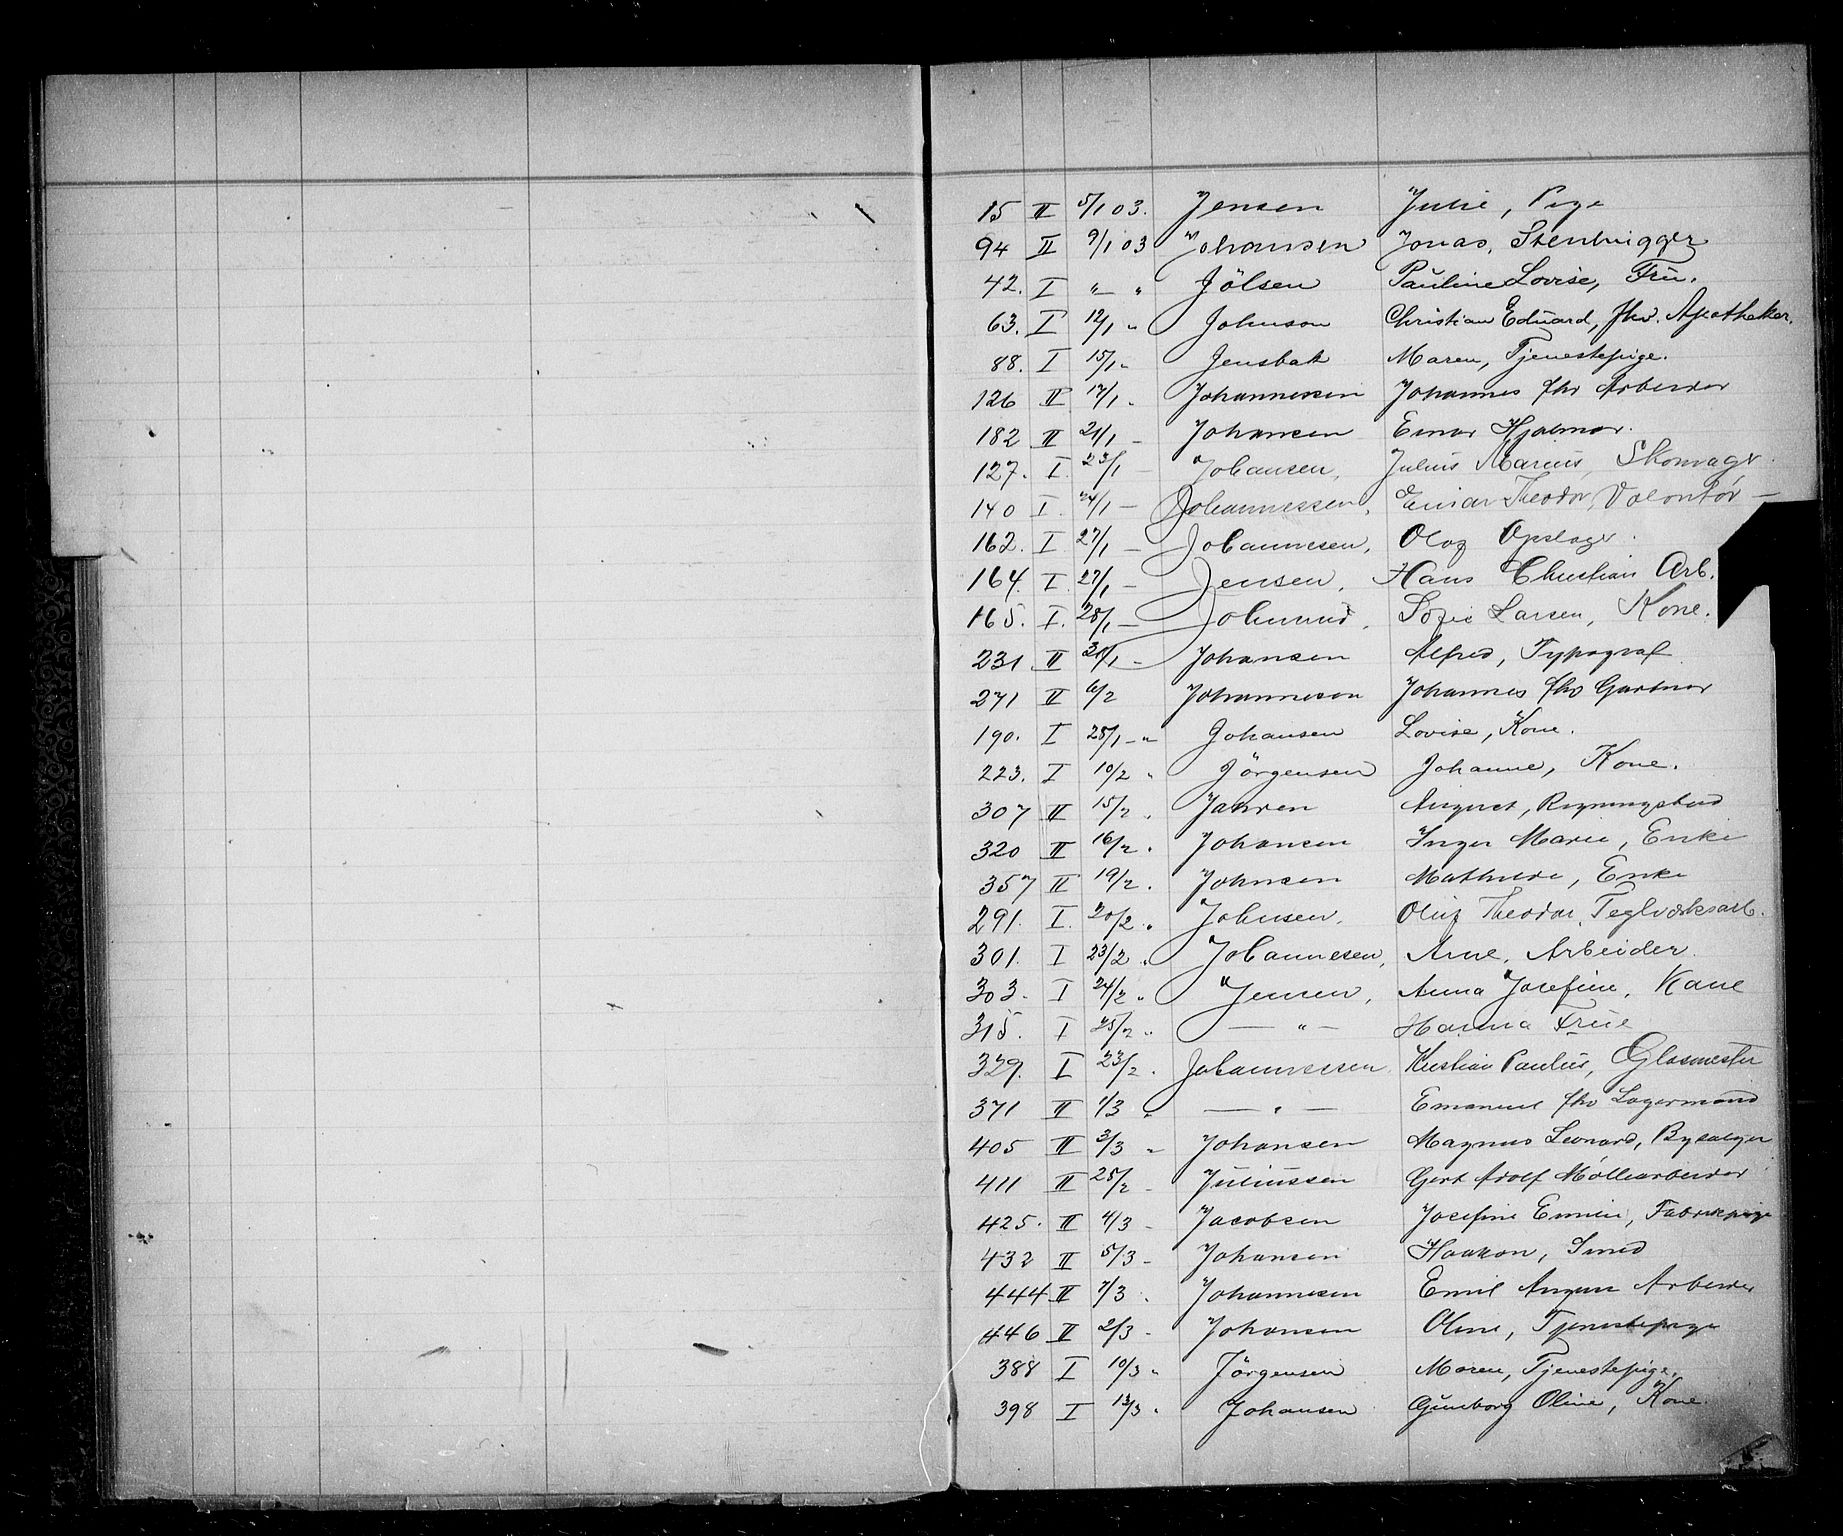 15 II 5/1 03. Jensen Julie, Pige
94 II 9/1 03 Johansen Jonas, Stenhugger
42. I " — " Jölsen Pauline Lovise, Frü.
63. I 12/1 " Johnson Christian Eduard, fhv. Apotheker.
88. I 15/1 " Jensbak Maren, Tjenestepige.
126 II 17/1 " Johannessen Johannes fhv Arbeider
182 II 21/1 — Johansen Einar Hjalmar.
127. I. 23/1 — Johansen, Julius Marius, Skomager.
140 I. 24/1 — Johannessen, Einar Theodor, Volontør —
162. I 27/1 — Johannesen, Olaf Opslager.
164. I. 27/1 — Jensen, Hans Christian Arb.
165. I. 28/1 — Sofie Larsen, Kone.
231 II 30/1 — Johansen Alfred, Typograf
271 II 6/2 Johannesen Johannes fhv Gartner
190. I 28/1 — " Johansen Lovise, Kone.
223. I 10/2 " Jörgensen Johanne, Kone.
307 II 15/2 . Jahren August, Regningsbud
320 II 16/2 . Johansen Inger Marie, Enke
357 II 19/2 . Johnsen Mathilde, Enke
291. I. 20/2 " Johnsen, Oluf Theodor, Teglværksarb.
301. I 23/2 " Johannesen, Arne, Arbeider.
303. I 24/2 " Jensen, Anna Josefine, Kone
315. I 25/2 " — " — Hanna Früe
329. I 23/2 . Johannessen Kristian Paulus, Glasmester
371 II 1/3 " — " — Emanuel fhv Lagermand
405 II 3/3 " Johansen Magnus Leonard, Bysælger
411 II 25/2 — Juliussen Gert Adolf Møllearbeider
425. II 4/3 — Jacobsen Josefine Emilie, Fabrikpige
432 II 5/3 — Johansen Haakon, Smed
444 II 7/3 . Johannesen Emil August Arbeider
446 II 2/3 — Johansen Oline, Tjenestepige
388 I 10/3 " Jörgensen Maren, Tjenestepige.
398 I 13/3 " Johansen Gunborg Oline, Kone.